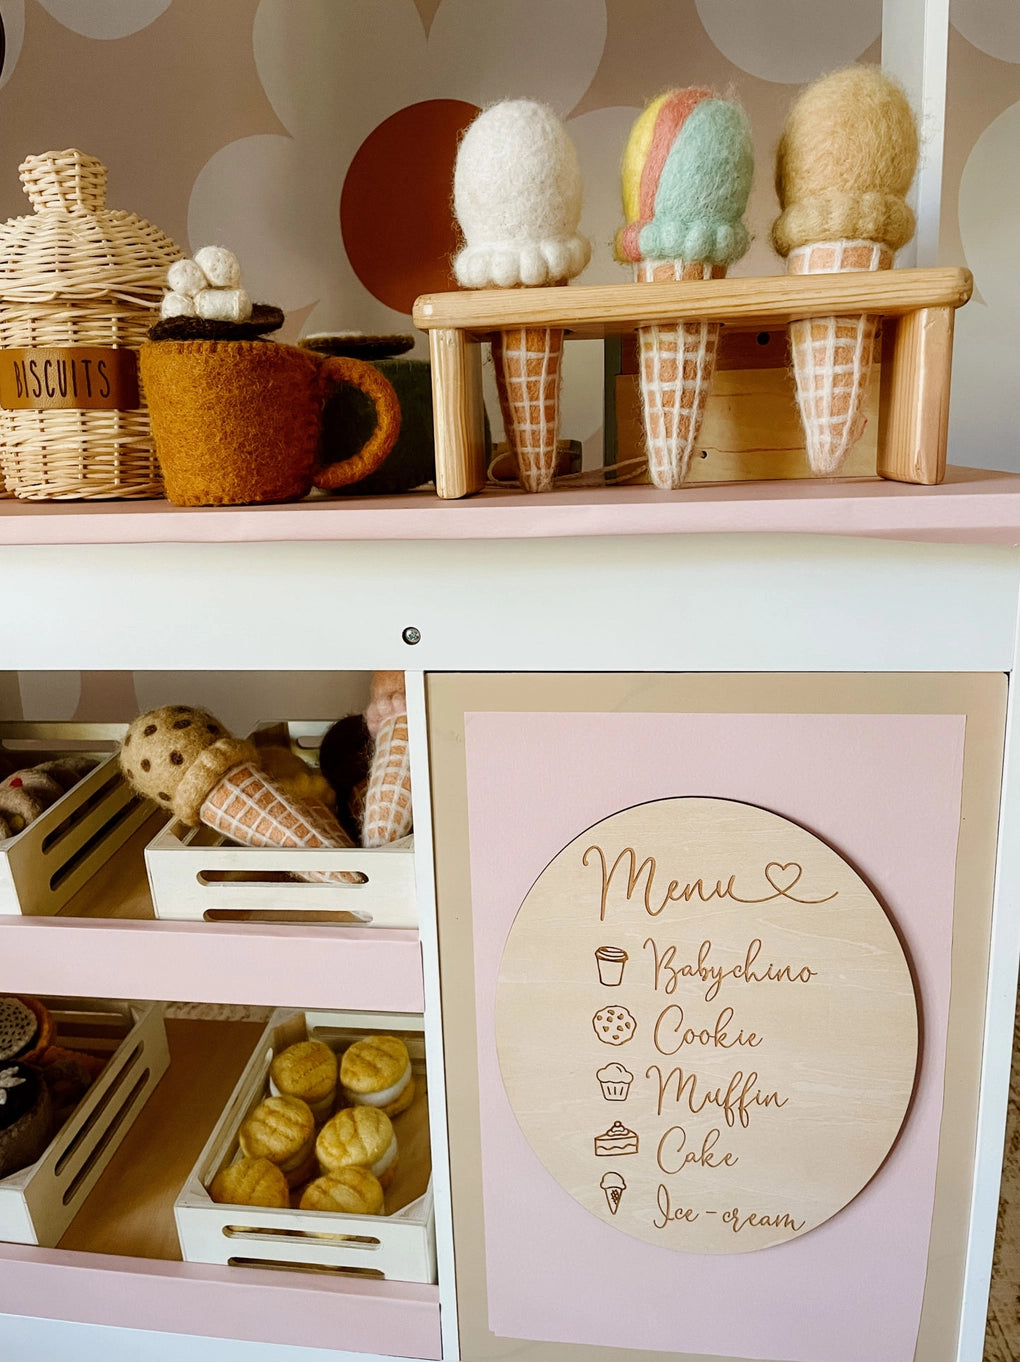 BISCUITS
Menu
Babychino
Cookie
Muffin
Cake
Ice-cream